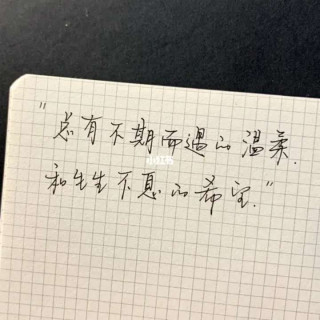 "总有不期而遇的温柔.
和生生不息的希望."
小红书